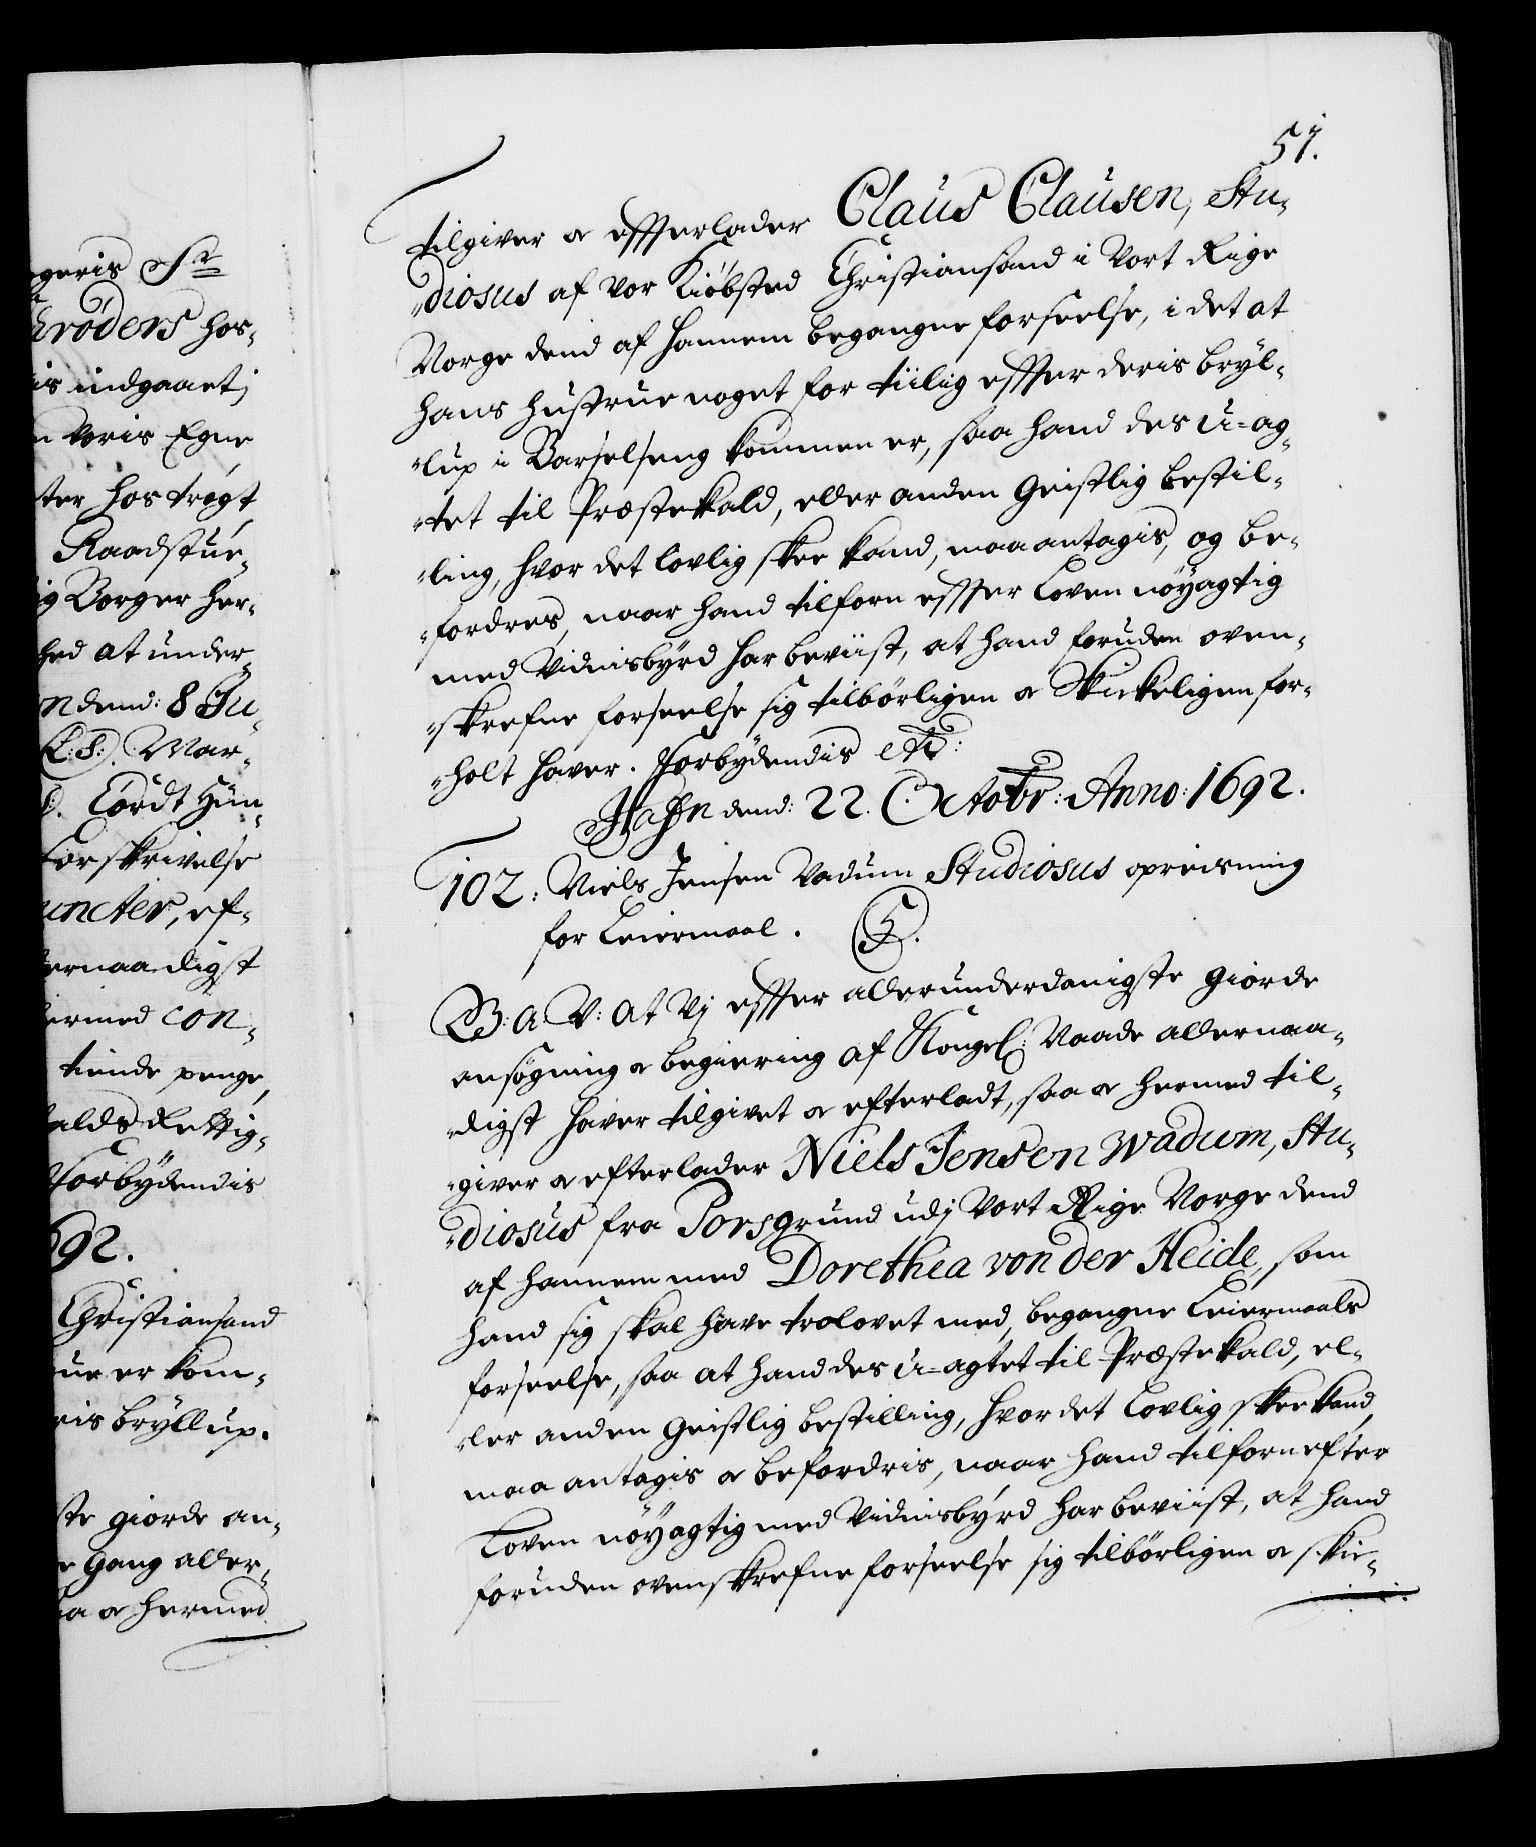 ogeris Sr
hröders hos-
is indgaaet j
n Voris Egne
ter hos trøgt
Raadstue-
ig Borger her-
hed at under-
n dend: 8 Ju-
L:S:). Mar-
Cordt Hün-
forskrivelse
uncter, ef-
ernaadigst
hermed con-
tiende penge,
alds Rettig-
Forbydendis
692.
Christiansand
ue er kom-
ris bryllup.
ste giorde an-
e gang aller-
aa & hermed
51.
tilgiver & effterlader Claus Clausen, Stu-
-diosus af vor Kiöbsted Christiansand i Vort Rige
Norge dend af hannem begangne forseelse, i det at
hans hustrue noget for tiilig effter deris bryl-
-lup i Barselseng kommen er, saa hand des u-ag-
-tet til Præstekald, eller anden Geistlig bestil-
-ling, hvor det lovlig skee kand, maa antagis, og be-
-fordres, naar hand tilforn effter Loven nöyagtig
med Vidnisbyrd har beviist, at hand foruden oven-
-skrefne forseelse sig tilbörligen & Skickeligen for-
-holt haver. Forbydendis etc:
Hafn dend: 22. Octobr: Anno: 1692.
102: Niels Jensen Vadum Studiosus opreisning
for Leiermaal.
G: A: V: At Vj effter allerunderdanigste giorde
ansögning & begiering af Kongel: Naade allernaa-
-digst haver tilgivet & efterladt, saa & hermed til-
-giver & efterlader Niels Jensen Wadum, Stu-
-diosus fra Porsgrund udj Vort Rige Norge dend
af hannem med Dorethea von der Heide, som
hand sig skal have trolovet med, begangne Leiermaals
forseelse, saa at hand des u-agtet til Præstekald, el-
-ler anden Geistlig bestilling, hvor det Lovlig skee kand,
maa antagis & befordris, naar hand tilforn efter
Loven nöyagtig med Vidnisbyrd har beviist, at hand
foruden ovenskrefne forseelse sig tilbörligen & skic-